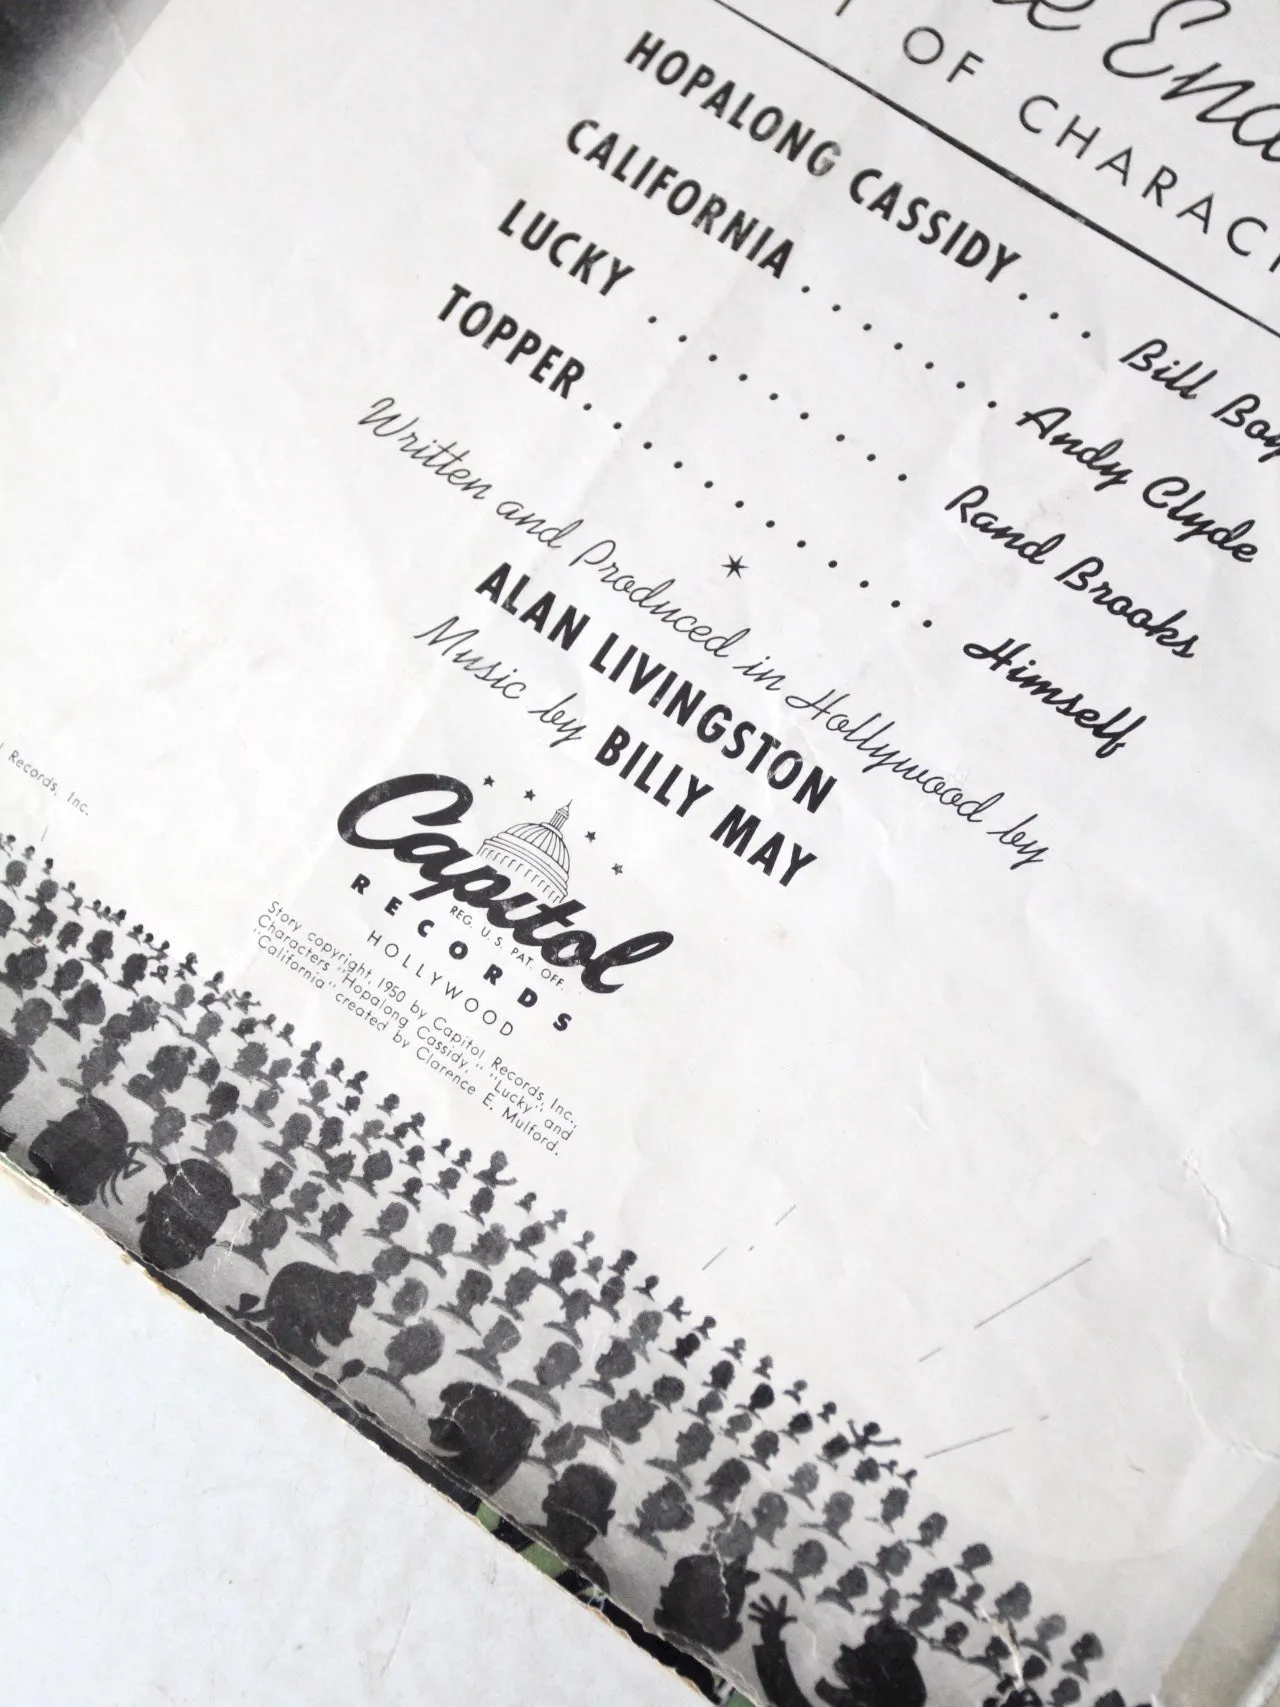 OF CHARAC
HOPALONG CASSIDY . . . Bill Boy
CALIFORNIA . . . . . . . Andy Clyde
LUCKY . . . . . . . . . Rand Brooks
TOPPER . . . . . . . . . . . . Himself
Written and Produced in Hollywood by
ALAN LIVINGSTON
Music by BILLY MAY
Capitol
REG. U.S. PAT. OFF.
RECORDS
HOLLYWOOD
Story copyright, 1950 by Capitol Records, Inc.,
Characters "Hopalong Cassidy," "Lucky" and
"California" created by Clarence E. Mulford.
Records, Inc.